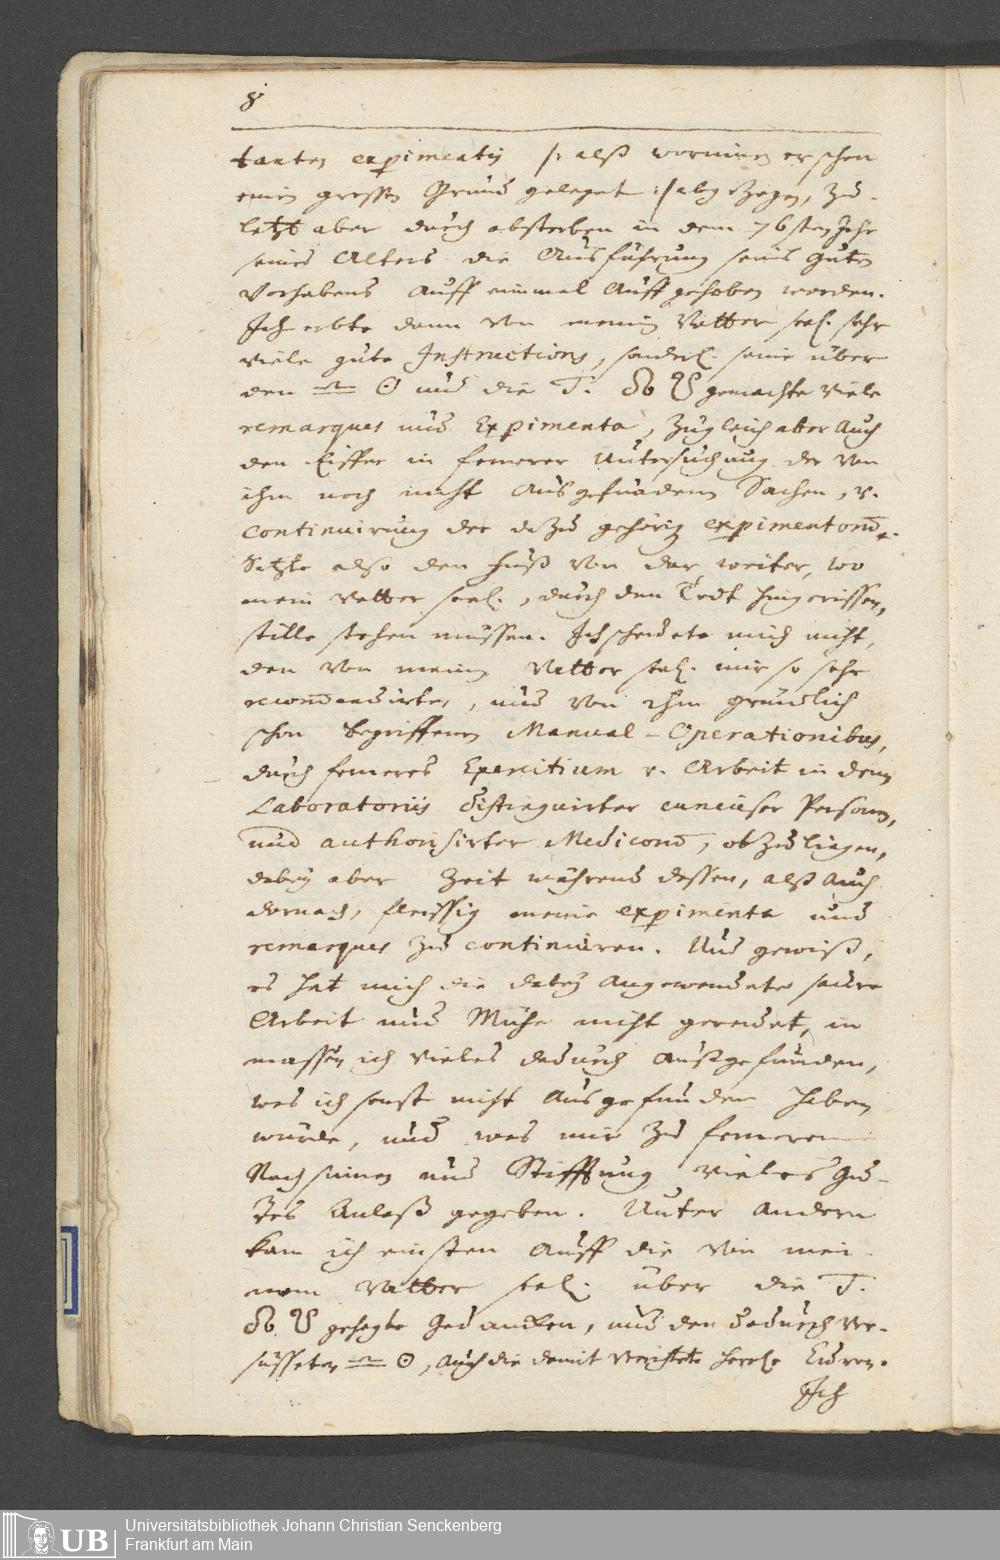 8
tanten experimentis /: alß worinnen er schon
einen grossen Grund geleget :/ abgezogen, zu-
letzt aber durch absterben in dem 76sten Jahr
seines Alters die Ausführung seines guten
Vorhabens auff einmal auffgehoben worden.
Ich erbte dann von meinem Vatter seel. sehr
viele gute Instructions, sonderl. seine über
den 🜔 ☉ und die T. gemachte viele
remarques und Experimenta, zugleich aber auch
den Eiffer in fernerer Untersuchung der von
ihm noch nicht ausgefundenen Sachen, v.
continuirung der dazu gehörig experimentorum.
Setzte also den Fuß von dar weiter, wo
mein Vatter seel., durch den Todt hingerissen,
stille stehen müssen. Ich scheuete mich nicht,
den von meinem Vatter seel. mir so sehr
recommendirten, und von ihm gründlich
schon begriffenen Manual-Operationibus,
durch ferneres Exercitium v. Arbeit in denen
Laboratoriis distinguirter curieuser Personen,
und authorisirter Medicorum, obzuliegen,
dabey aber Zeit während dessen, alß auch
darnach, fleissig meine experimenta und
remarques zu continuiren. Und gewiß,
es hat mich die dabey angewendete saure
Arbeit und Mühe nicht gereuet, in
massen ich vieles dadurch außgefunden,
was ich sonst nicht ausgefunden haben
würde, und was mir zu fernerem
Nachsinnen und Stifftung vieles Gu-
tes Anlaß gegeben. Unter andern
kam ich einsten auff die von mei-
nem Vatter seel. über die T.
gehegte Gedancken, und den dadurch ver-
süsseten ☉, auch die damit verrichtete herrl. Curen.
Ich
Universitätsbibliothek Johann Christian Senckenberg
Frankfurt am Main
UB